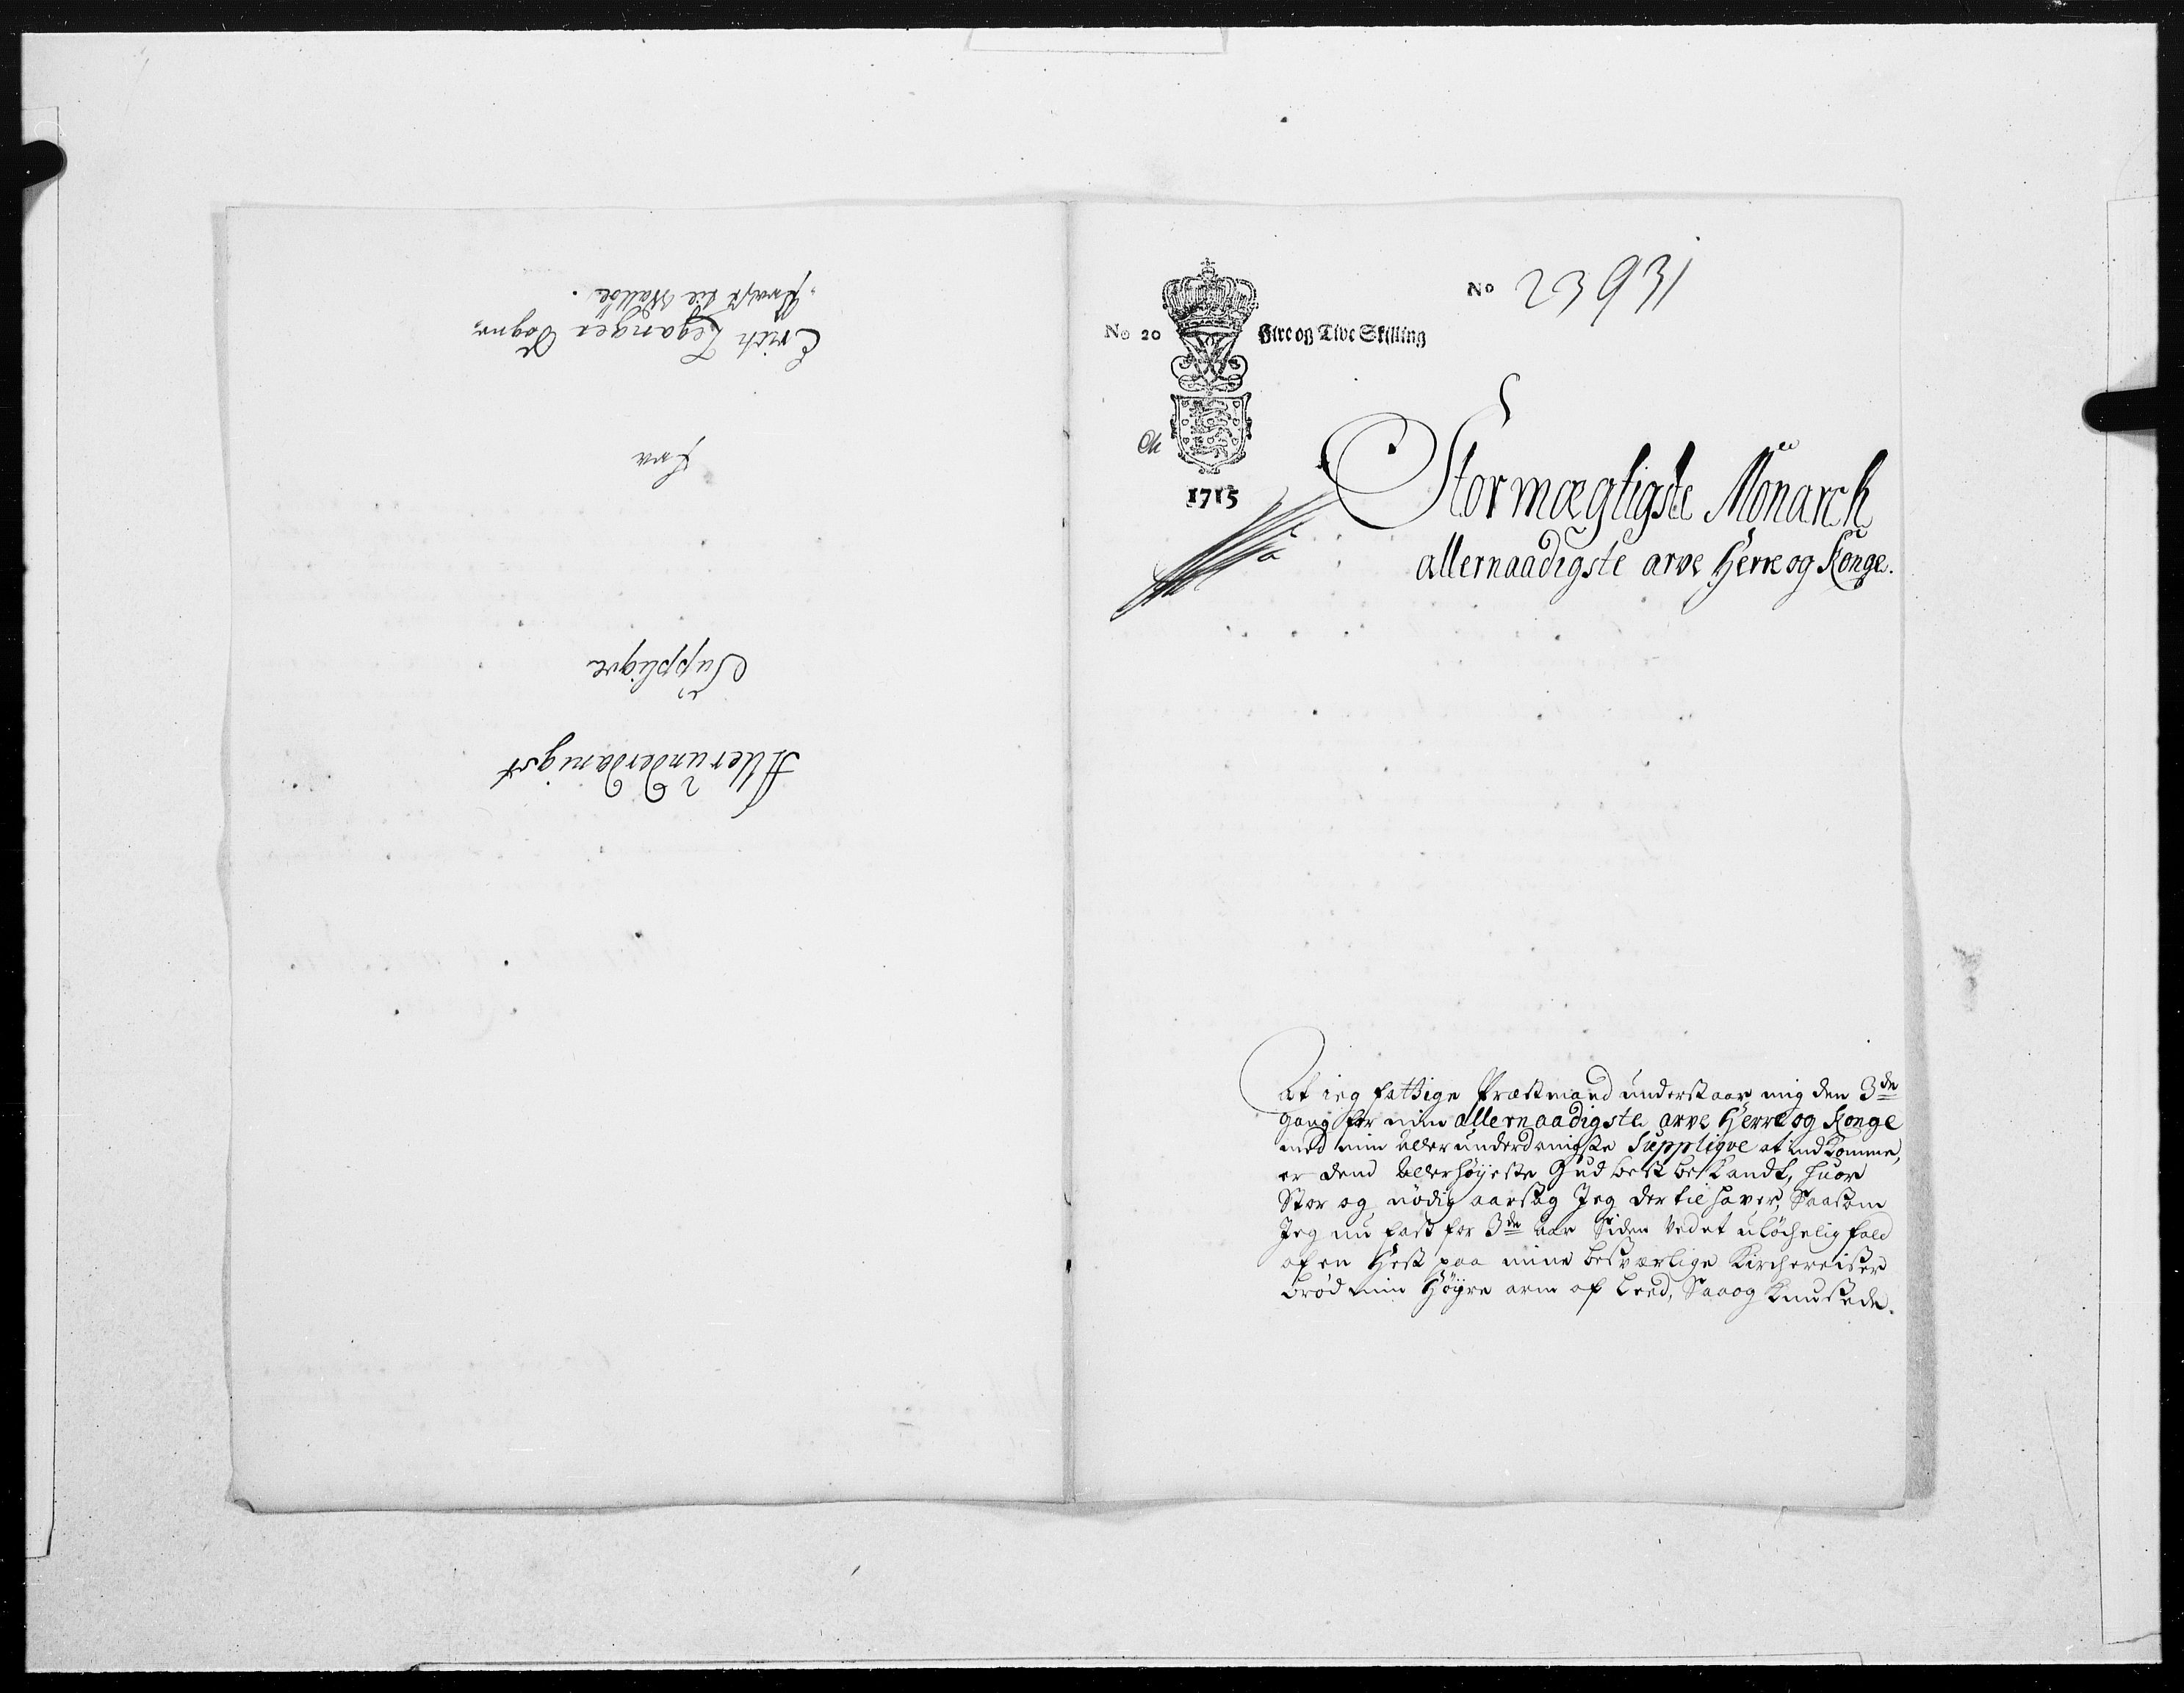 Allerunderdanigst
Supplique
fra
Erich Leganger Sogne
Præst til Walle.
No 23931
No 20 Fire og Tive Skilling
1715
Stormægtigste Monarch
allernaadigste arve Herre og Konge.
At ieg fattige Præstmand understaar mig den 3de
gang for min allernaadigste arve Herre og Konge
med min allerunderdanigste Supplique at indkomme,
er dend allerhöyeste Gud best bekandt, huor
Stor og nödig aarsag Jeg der til haver, Saasom
Jeg nu fast for 3de aar Siden ved et ulöchelig fald
af en Hest paa mine besværlige Kirchereiser
bröd min Höyre arm af Leed, Saa og knusede.